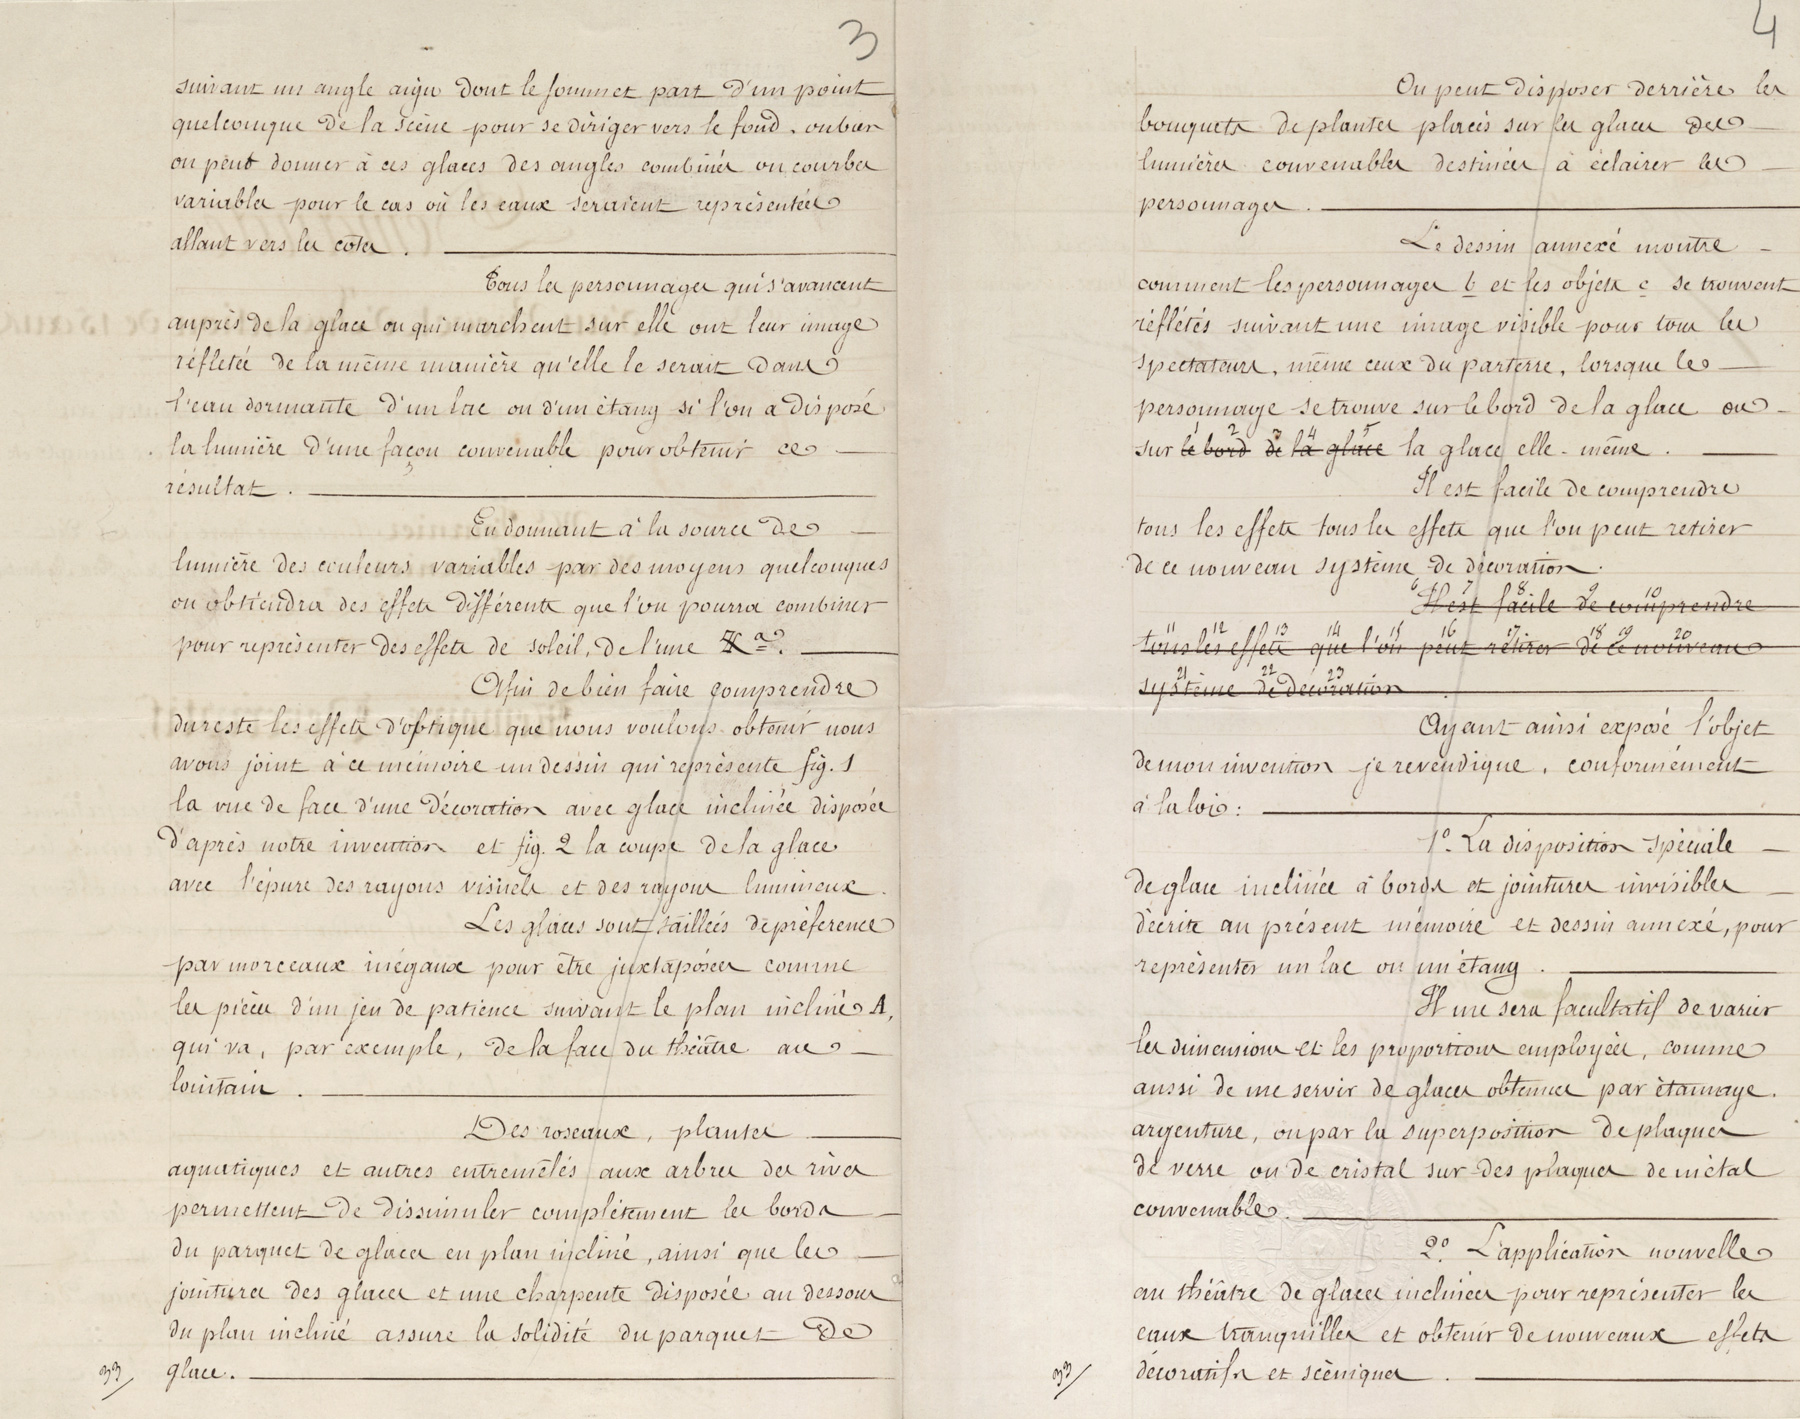 3
suivant un angle aigu dont le sommet part d'un point
quelconque de la scène pour se diriger vers le fond. ou bien
on peut donner à ces glaces des angles combinés ou courbes
variables pour le cas où les eaux seraient représentées
allant vers les côtés.
Tous les personnages qui s'avancent
auprès de la glace ou qui marchent sur elle ont leur image
réflétée de la même manière qu'elle le serait dans
l'eau dormante d'un lac ou d'un étang si l'on a disposé
la lumière d'une façon convenable pour obtenir ce
résultat.
En donnant à la source de
lumière des couleurs variables par des moyens quelconques
on obtiendra des effets différents que l'on pourra combiner
pour représenter des effets de soleil, de lune &a.
Afin de bien faire comprendre
du reste les effets d'optique que nous voulons obtenir nous
avons joint à ce mémoire un dessin qui représente fig. 1
la vue de face d'une décoration avec glace inclinée disposée
d'après notre invention et fig. 2 la coupe de la glace
avec l'épure des rayons visuels et des rayons lumineux.
Les glaces sont taillées de préférence
par morceaux inégaux pour être juxtaposées comme
les pièces d'un jeu de patience suivant le plan incliné A,
qui va, par exemple, de la face du théâtre au
lointain.
Des roseaux, plantes
aquatiques et autres entremêlés aux arbres des rives
permettent de dissimuler complètement les bords
du parquet de glaces en plan incliné, ainsi que les
jointures des glaces et une charpente disposée au dessous
du plan incliné assure la solidité du parquet de
glace.
33
4
On peut disposer derrière les
bouquets de plantes placés sur les glaces des
lumières convenables destinées à éclairer les
personnages.
Le dessin annexé montre
comment les personnages b et les objets c se trouvent
réflétés suivant une image visible pour tous les
spectateurs, même ceux du parterre, lorsque le
personnage se trouve sur le bord de la glace ou
2 3 4 5
sur le bord de la glace la glace elle-même.
Il est facile de comprendre
tous les effets tous les effets que l'on peut retirer
de ce nouveau système de décoration.
6 7 8 9 10
Il est facile de comprendre
11 12 13 14 15 16 17 18 19 20
tous les effets que l'on peut retirer de ce nouveau
21 22 23
système de décoration
Ayant ainsi exposé l'objet
de mon invention je revendique, conformément
à la loi:
1º La disposition spéciale
de glace inclinée à bords et jointures invisibles
décrite au présent mémoire et dessin annexé, pour
représenter un lac ou un étang.
Il me sera facultatif de varier
les dimensions et les proportions employées, comme
aussi de me servir de glaces obtenues par étamage.
argenture, ou par la superposition de plaques
de verre ou de cristal sur des plaques de métal
convenable.
2º L'application nouvelle
au théâtre de glaces inclinées pour représenter les
eaux tranquilles et obtenir de nouveaux effets
décoratifs et scéniques.
33